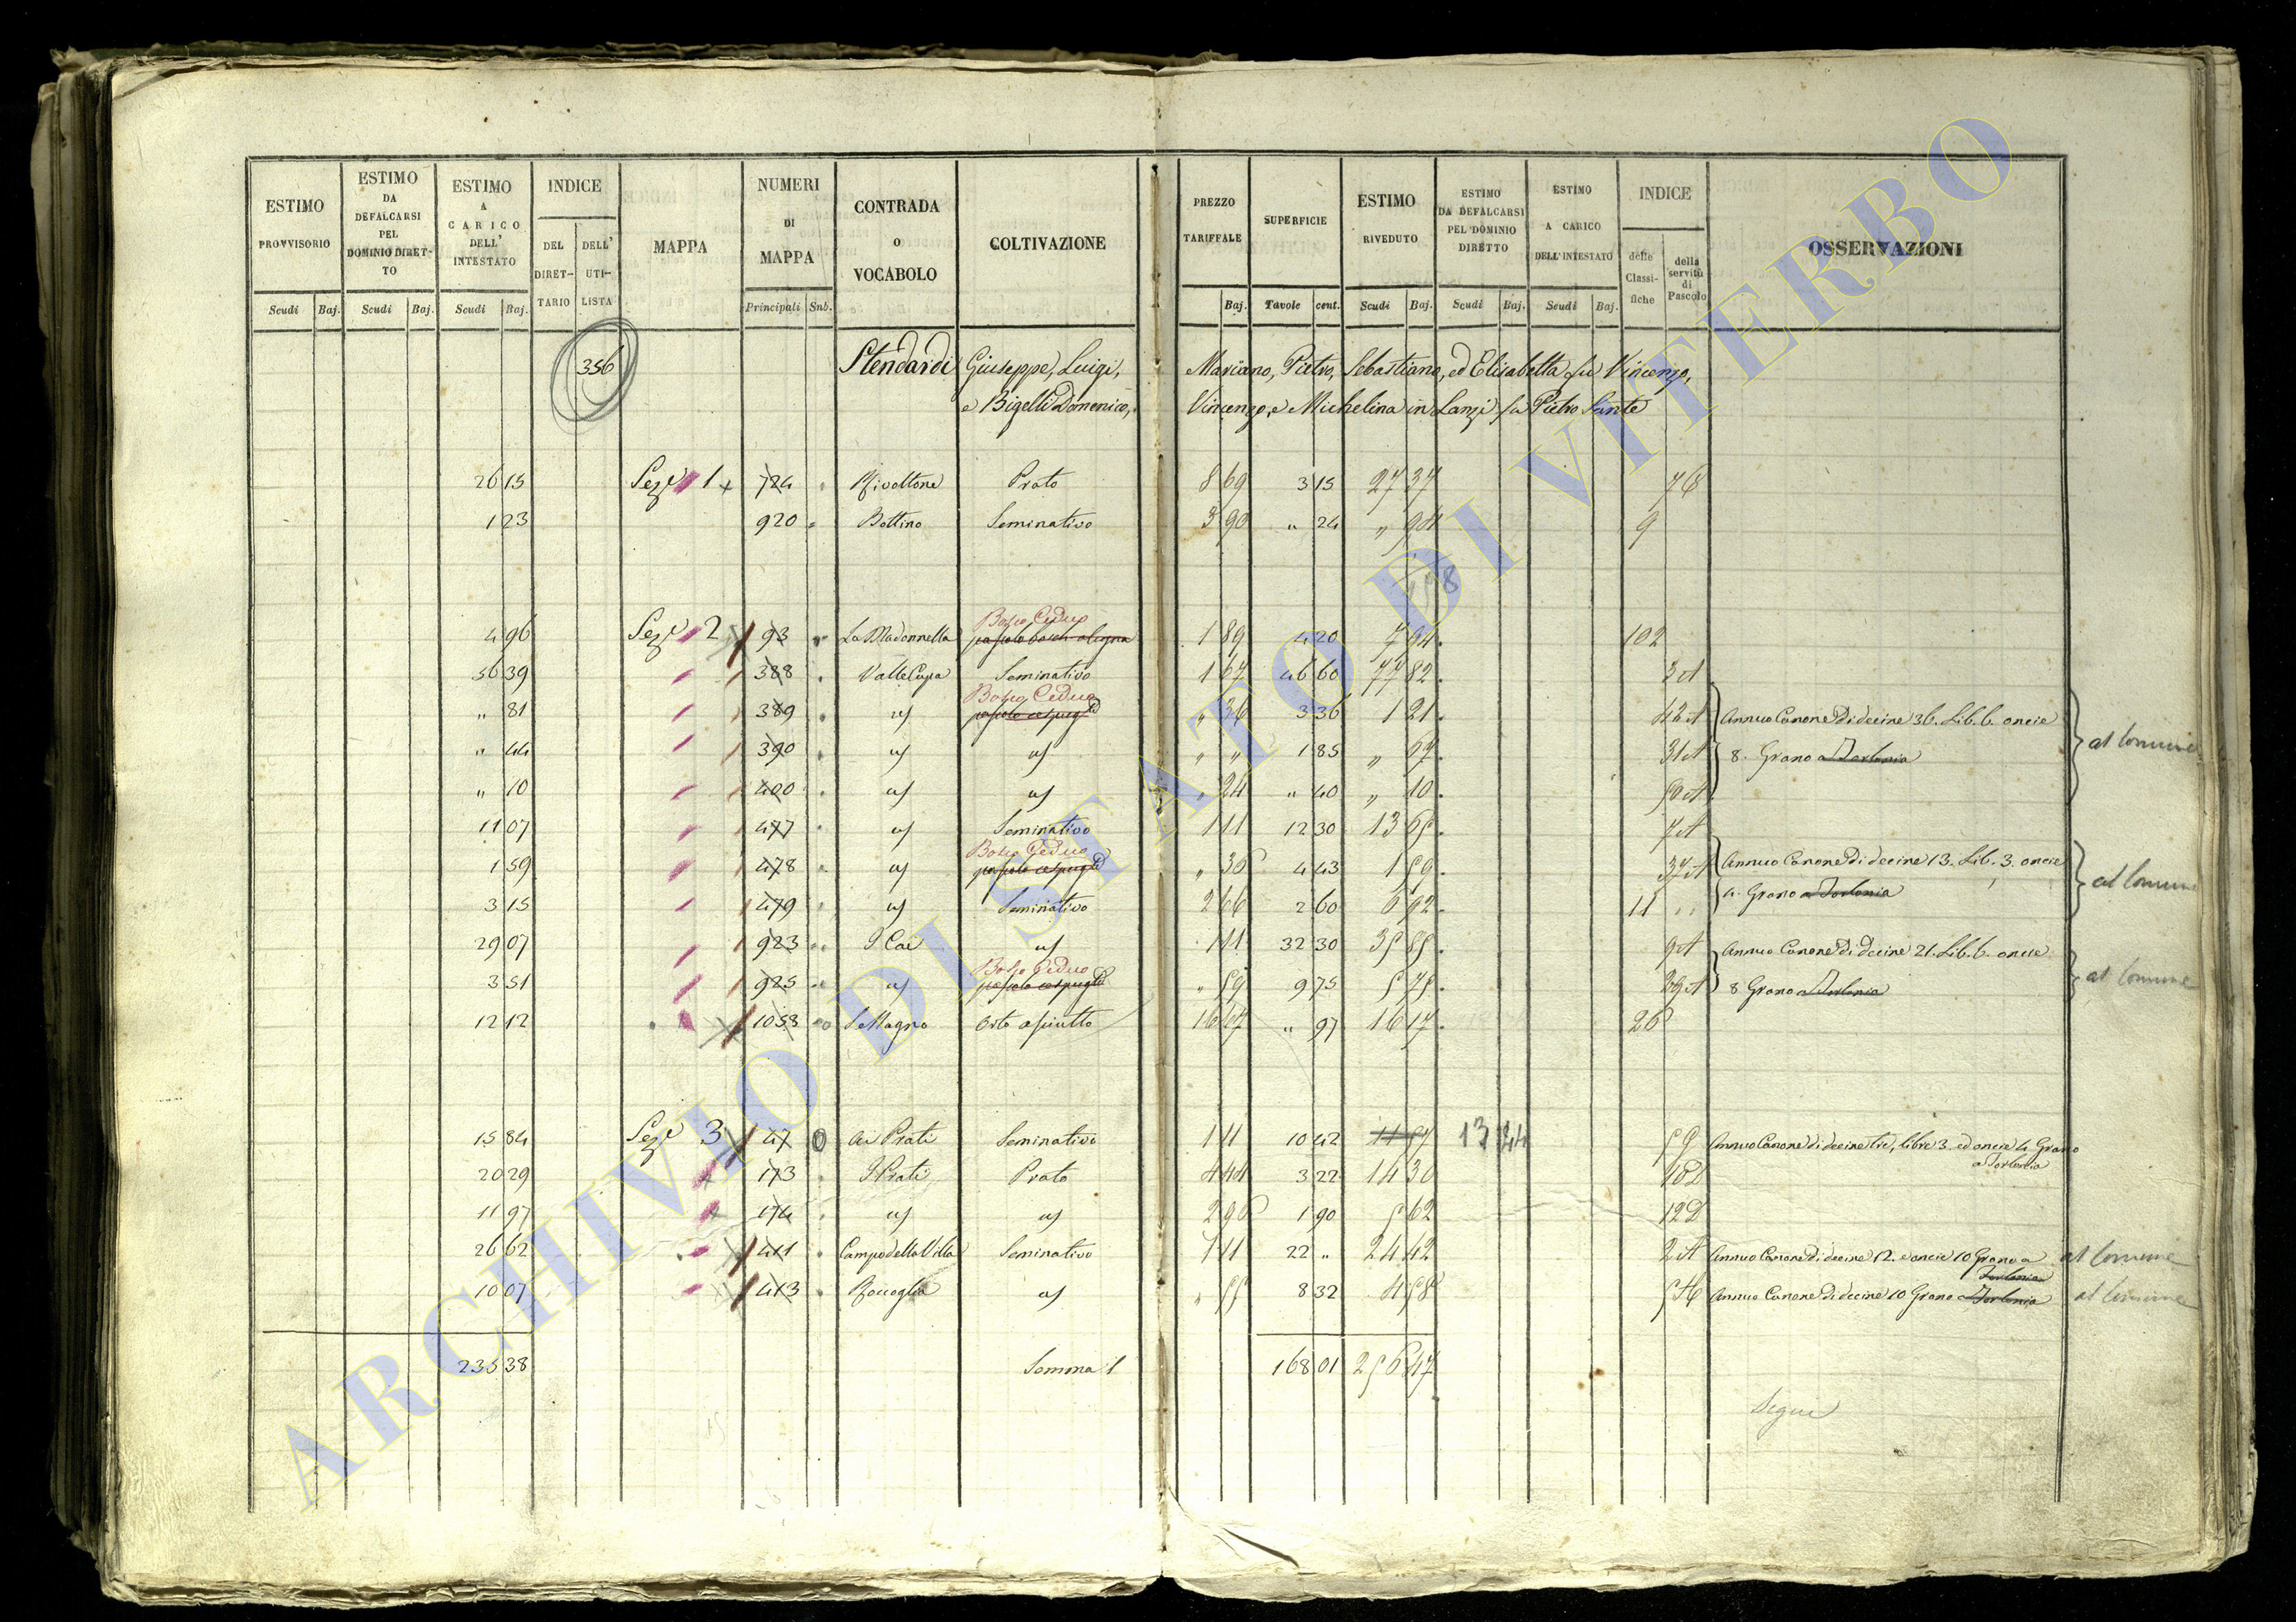 ESTIMO PROVVISORIO | ESTIMO DA DEFALCARSI PEL DOMINIO DIRETTO | ESTIMO A CARICO DELL' INTESTATO | INDICE | MAPPA | NUMERI DI MAPPA | CONTRADA O VOCABOLO | COLTIVAZIONE | PREZZO TARIFFALE | SUPERFICIE | ESTIMO RIVEDUTO | ESTIMO DA DEFALCARSI PEL DOMINIO DIRETTO | ESTIMO A CARICO DELL'INTESTATO | INDICE | OSSERVAZIONI
DEL DIRETTARIO | DELL' UTILISTA | delle Classifiche | della servitù di Pascolo
Scudi | Baj. | Scudi | Baj. | Scudi | Baj. | Principali | Sub. | Baj. | Tavole | cent. | Scudi | Baj. | Scudi | Baj. | Scudi | Baj.
356 Stendardi Giuseppe, Luigi, Mariano, Pietro, Sebastiano, ed Elisabetta fu Vincenzo,
e Bigelli Domenico, Vincenzo, e Michelina in Lanzi fu Pietro Sante
26 15 Seze 1 724 Rivoltone Prato 8 69 3 15 27 37
1 23 920 Bottino Seminativo 3 90 " 24 " 94 9
Bosco Ceduo
4 96 Seze 2 93 La Madonnella 1 89 4 20 7 94 102
56 39 388 Valle Cupa Seminativo 1 67 46 60 77 82 3 A
Bosco Ceduo
" 81 389 id pascolo cespugto " 36 3 36 1 21 42 A Annuo Canone di decine 36. Lib. 6. oncie
" 44 390 id id " " 1 85 " 67 31 A 8. Grano a Torlonia al Comune
" 10 400 id id " 24 " 40 " 10 50 A
11 07 477 id Seminativo 1 11 12 30 13 65 7 A
Bosco Ceduo
1 59 478 id pascolo cespugto " 36 4 43 1 59 37 A Annuo Canone di decine 13. Lib. 3. oncie
3 15 479 id Seminativo 2 66 2 60 6 92 11 4. Grano a Torlonia al Comune
29 07 923 I Cai id 1 11 32 30 35 85 9 A Annuo Canone di decine 21. Lib. 6. oncie
Bosco Ceduo
3 51 925 id pascolo cespugto " 59 9 75 5 75 29 A 8 Grano a Torlonia al Comune
12 12 1058 Orto asciutto 16 67 " 97 16 17 26
15 84 Seze 3 47 0 Ai Prati Seminativo 1 11 10 42 11 57 13 24 5 9 Annuo Canone di decine tre, libre 3. ed oncie 4 Grano
a Torlonia
20 29 173 I Prati Prato 4 44 3 22 14 30 10 D
11 97 174 id id 2 96 1 90 5 62 12 D
26 62 411 Campo della Villa Seminativo 1 11 22 " 24 42 2 A Annuo Canone di decine 12. e oncie 10 Grano a al Comune
Torlonia
10 07 413 Roccoglia id " 55 8 32 4 58 Annuo Canone di decine 10 Grano a Torlonia al Comune
235 38 Somma 168 01 256 47
Segue
ARCHIVIO DI STATO DI VITERBO